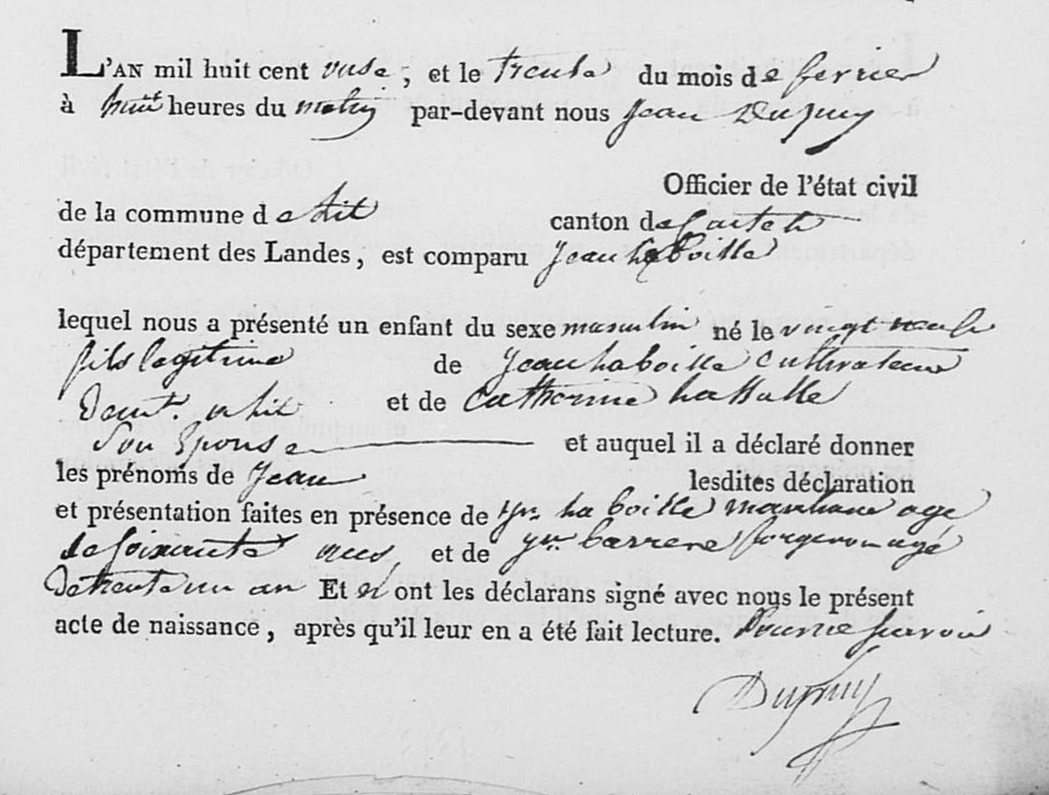 L'AN mil huit cent onze, et le trente du mois de fevrier
à huit heures du matin par-devant nous Jean Dupuy
Officier de l'état civil
de la commune de hit canton de
département des Landes, est comparu Jean Laboille
lequel nous a présenté un enfant du sexe masculin né le vingt neuf
fils legitime de Jean Laboille Cultivateur
et de Catherine
Son Epouse et auquel il a déclaré donner
les prénoms de Jean lesdites déclaration
et présentation faites en présence de Jn. Laboille age
de soixante ans, et de Jn. Barrere forgeron agé
de trente un an Et n' ont les déclarans signé avec nous le présent
acte de naissance, après qu'il leur en a été fait lecture. Pour ne savoir
Dupuy